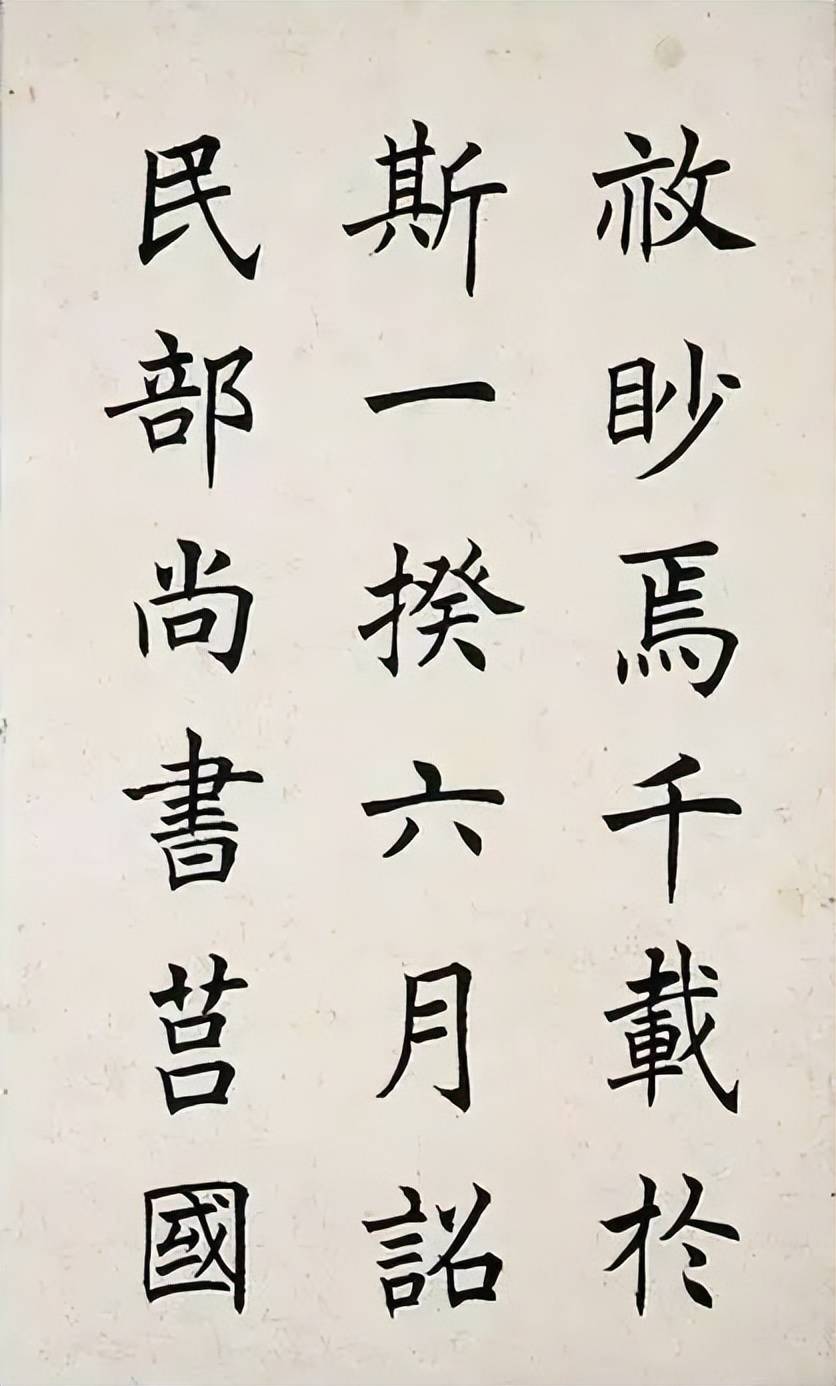 眇焉千載於
斯一揆六月詔
民部尚書莒國